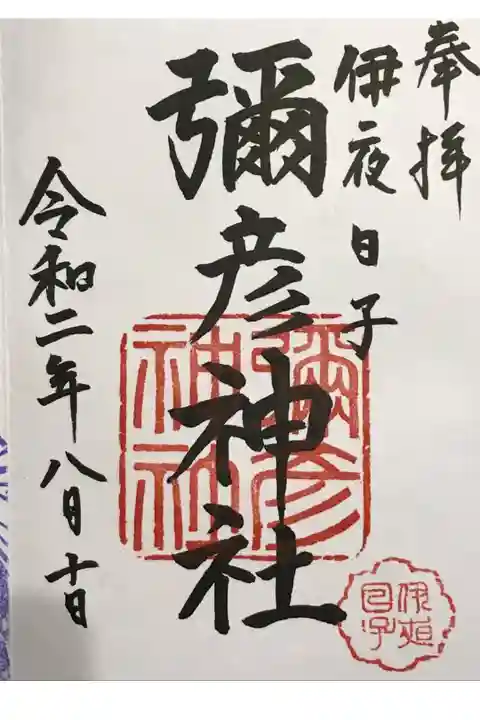 奉拝
伊夜日子
彌彦神社
令和二年八月十日
彌彦神社
伊夜日子